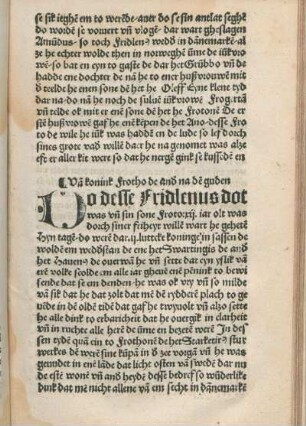 se sik ieghē en to werēde. auer do se sin antlat seghē
do worde se vorvert vñ vlogē. dar wart gheslagen
Amūdus. so toch Fridleu⁹ wedd in dānemarkē. al
ze he echter wolde then in norweghē ūme de iūkvro
wē. so bat en eyn to gaste de dar het Grūbbo vñ de
hadde ene dochter de nā he to ener hußvrouwē mit
d teelde he enen sone dē het he Oleff Eyne klene tyd
dar na. do nā he noch de suluē iūkvrowē Frogartā
vñ telde ok mit er enē sone dē het he Frotonē De er
stē hußvrowē gaf he enē kēpen de het Ano. desse Fro
to de wile he iūk was haddē en de lude so lef dorch
sines grote vad willē dat he na genomet was alze
eft er aller kit were so dat he nergē gink se kussedē en
Vā konink Frotho de and na dē guden
Do desse Fridlenus dot
was vñ sin sone Froto. xij. iar olt was
dorch siner friheyt willē wart he gehetē
Zyn tagē. do werē dar. ij. luttke koninge in sassen de
woldē em weddstān de ene het Swertingis de and
het Hauen. de ouerwā he vñ sette dat eyn yslik vā
erē volke scolde en alle iar gheuē enē pēnink to bewi
sende dat se em denden. he was ok vry vñ so mildē
vā sik dat he dat zolt dat mē dē rydderē plach to ge
uēde in dē oldē tidē dat gaf he twyuolt vñ alzo sette
he alle dink to erbaricheit dat he ouergik in clarheit
vñ in ruchte alle herē de ūme en bezetē werē In des
sen tyde quā ein to Frothonē de het Starkater⁹ stur
werkes dē werē sine kūpā in d zee vorgā vñ he was
geundet in enē lāde dat licht osten vā swedē dar nu
de estē wonē vñ and heyde desse bedref so wūderlike
dink dat mē nicht allene vā em secht in dānemarkē